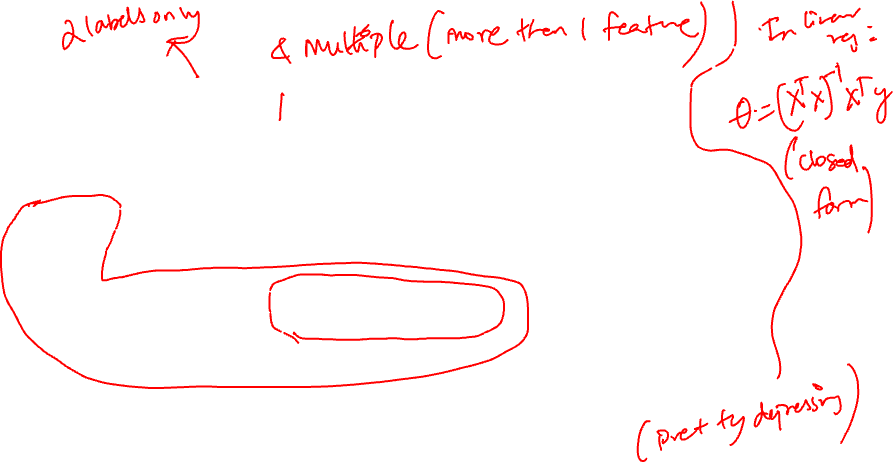 2 labels only
& Multiple (more than 1 feature))
In linear
reg:
θ = (XᵀX)⁻¹Xᵀy
(closed
form)
(pretty depressing)